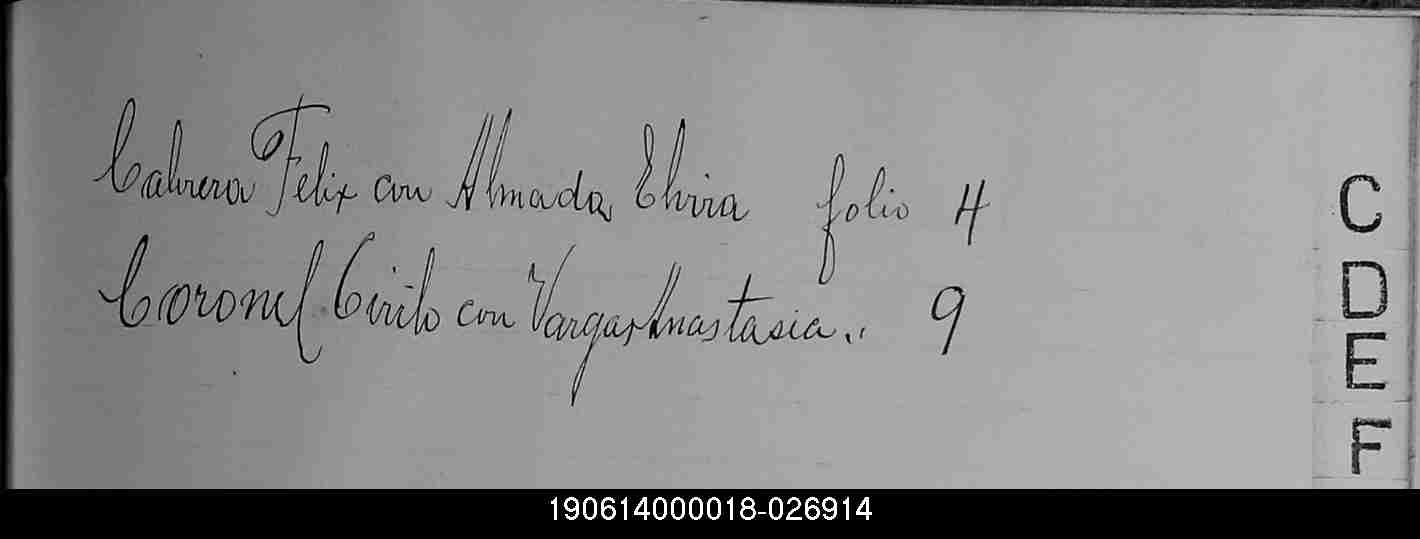 Cabrera Felix con Almada Elvira folio 4
Coronel Cirilo con Vargas Anastasia „ 9
C
D
E
F
190614000018-026914